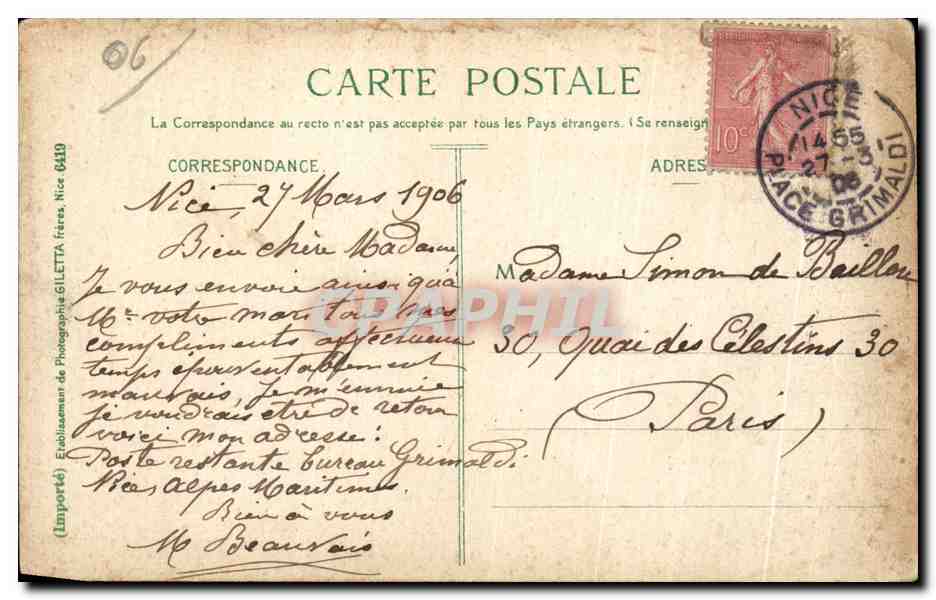 06
CARTE POSTALE
La Correspondance au recto n'est pas acceptée par tous les Pays étrangers. (Se renseign
CORRESPONDANCE
ADRES
10c
NICE
14 55
27 - 3
06
PLACE GRIMALDI
Nice, 27 Mars 1906
Bien chère Madame,
Je vous envoie ainsi qu'à
Mr votre mari tous mes
compliments affectueux
temps épouvantablement
mauvais, je m'ennuie
je voudrais être de retour
voici mon adresse:
Poste restante bureau Grimaldi
Nice, Alpes Maritimes.
Bien à vous
M Beauvais
Madame Simon de
30, Quai des Célestins 30
(Paris)
CPAPHIL
(Importé) Etablissement de Photographie GILETTA frères, Nice 6419